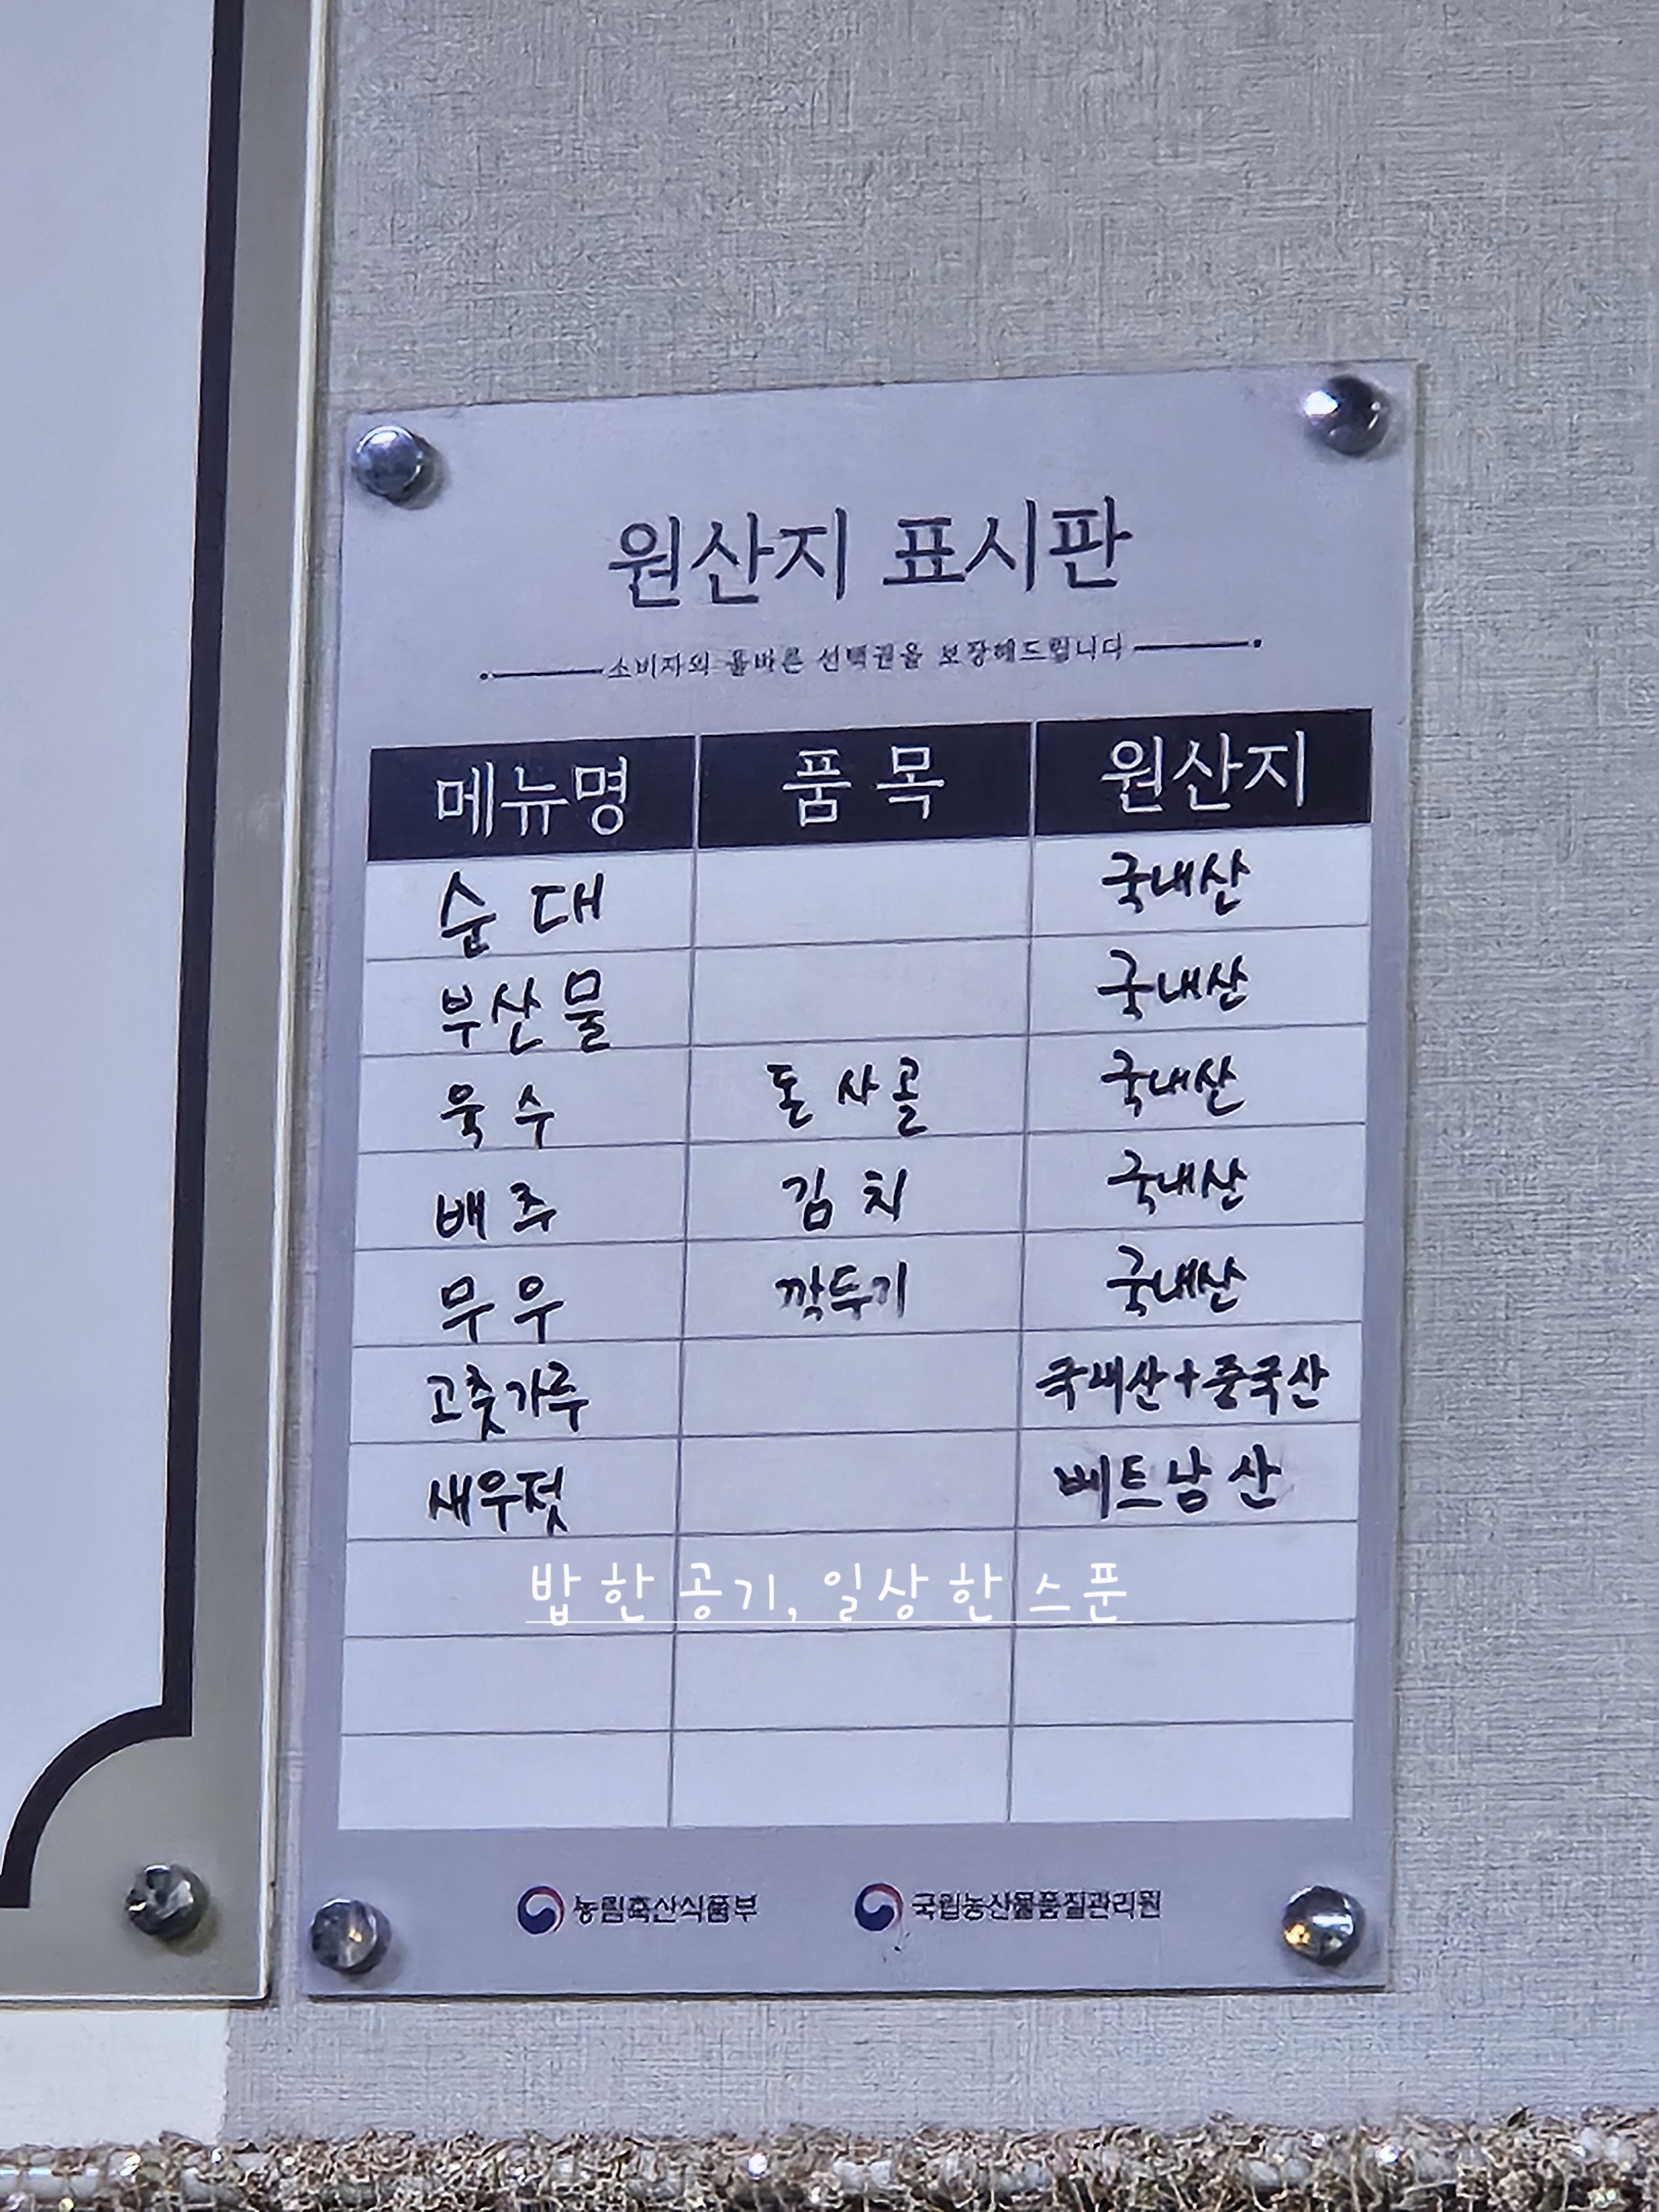 원산지 표시판
소비자의 올바른 선택권을 보장해드립니다
메뉴명 품목 원산지
순대 국내산
부산물 국내산
육수 돈사골 국내산
배추 김치 국내산
무우 깍두기 국내산
고춧가루 국내산+중국산
새우젓 베트남산
밥 한 공기, 일상 한 스푼
농림축산식품부 국립농산물품질관리원